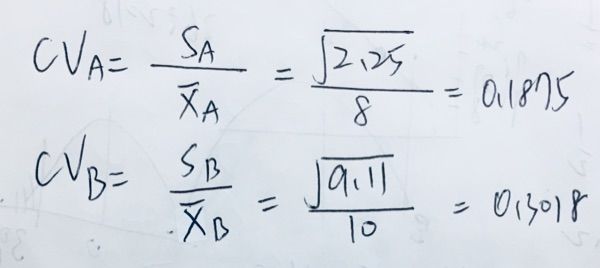 CV_A = S_A / X̄_A = √2.25 / 8 = 0.1875
CV_B = S_B / X̄_B = √9.11 / 10 = 0.3018